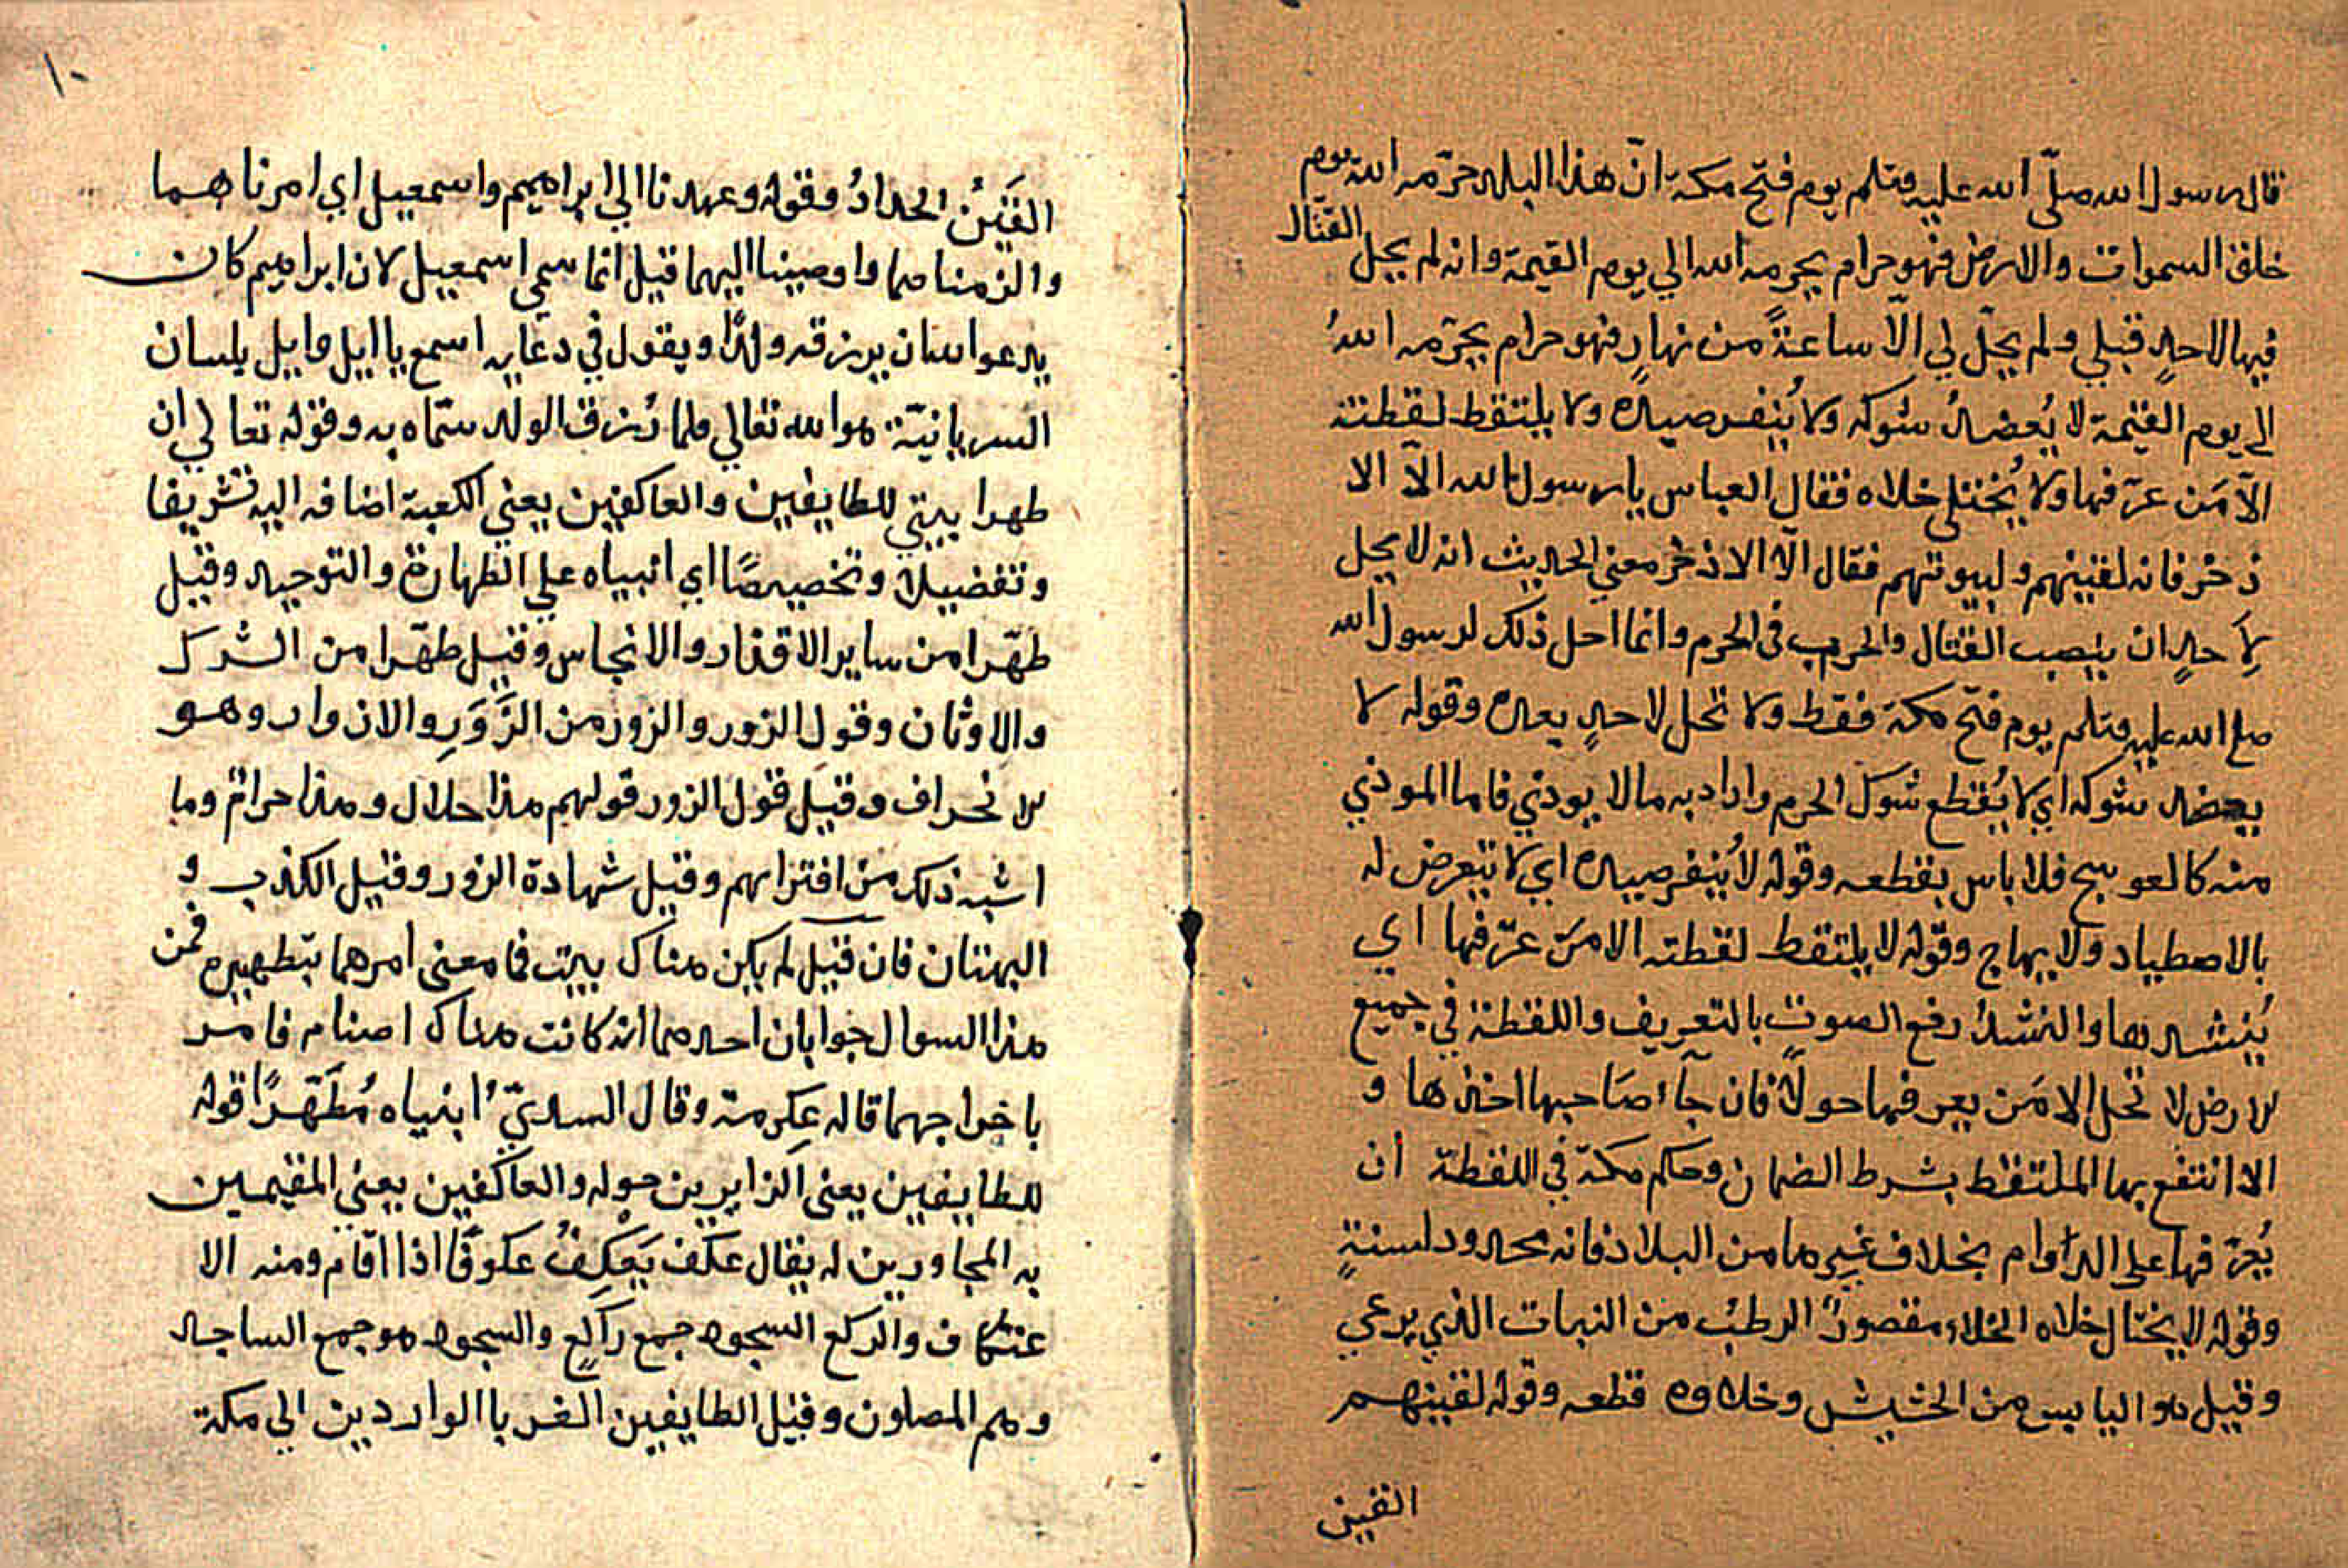 قال رسول الله صلّي الله عليه وسلم يوم فتح مكة انّ هذا البلد حرّمه الله يوم
خلق السموات والارض فهو حرام بحرمه الله الي يوم القيمة وانه لم يحل القتال
فيها لاحدٍ قبلي ولم يحلّ لي الّا ساعةً من نهارٍ فهو حرام بحرّمه اللهُ
الى يوم القيمة لا يُعضدُ شوكه ولا يُنفر صيده ولا يلتقط لقطته
الاّ مَن عرّفها ولا يُختلى خلاه فقال العباس يا رسول الله الاّ الا
ذخر فانه لقينهم ولبيوتهم فقال الّا الاذخر معني الحديث انه لا يحل
لِاَحدٍ ان ينصب القتال والحرب فى الحرم وانما احل ذلك لرسول الله
صلع الله عليه وسلم يوم فتح مكة فقط ولا تحل لاحدٍ بعده وقوله لا
يعضد شوكه اي لا يُقطع شوك الحرم واراد به مالا يوذي فاما الموذي
منه كالعوسج فلا باس بقطعه وقوله لا يُنفر صيده اي لا يتعرض له
بالاصطياد ولا يهاج وقوله لا يلتقط لقطته الا مَن عرّفها اي
يُنشدها والنشدُ رفع الصوت بالتعريف واللقطة في جميع
لارض لا تحل الا مَن يعرفها حولًا فان جآء صَاحبها اخذها و
الا انتفع بها الملتقط بشرط الضمان وحكم مكة في اللقطة ان
يُعرّفها على الدّوام بخلاف غيرها من البلاد فانه محدود لسنةٍ
وقوله لا يختل خلاه الخلاء مقصورٌ الرطب من النبات الذي يرعي
وقيل هو اليابس من الحشيش وخلاوه قطعه وقوله لقينهم
القين
١٠
القَينُ الحدادُ وقوله وعهدنا الي ابراهيم واسمعيل اي امرناهما
والزمناهما واوصينا اليهما قيل انما سمي اسمعيل لان ابراهيم كان
يدعو الله ان يرزقه ولدًا ويقول في دعايه اسمع يا ايل وايل بلسان
السريانية هو الله تعالي فلما رُزق الولد سمّاه به وقوله تعالي ان
طهرا بيتي للطايفين والعاكفين يعني الكعبة اضافه اليه تشريفا
وتفضيلا وتخصيصًا اي ابنياه علي الطهارة والتوحيد وقيل
طهّرا من ساير الاقذار والانجاس وقيل طهّرا من الشرك
والاوثان وقول الزور والزور من الزَّوَرِ والازوار وهو
لانحراف وقيل قول الزور قولهم هذا حلال وهذا حرامٌ وما
اشبه ذلك من افترايهم وقيل شهادة الزور وقيل الكذب و
البهتان فان قيل لم يكن هناك بيت فما معنى امرهما بتطهيره فمن
هذا السوال جوابان احدهما انه كانت هناك اصنام فامر
باخراجهما قاله عكرمة وقال السديّ ابنياه مُطَهَّرًا قوله
للطايفين يعنى الزايرين حوله والعاكفين يعني المقيمين
به المجاورين له يقال عكف يَعكِفُ عكوفًا اذا اقام ومنه الا
عتكاف والركع السجود جمع راكعٍ والسجود هو جمع الساجد
وهم المصلون وقيل الطايفين الغربا الواردين الي مكة